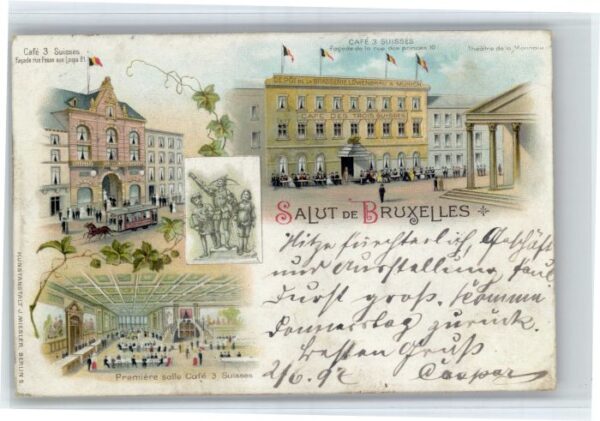 Café 3 Suisses
Façade rue Fossé aux Loups 21.
CAFÉ 3 SUISSES
Façade de la rue des princes 10.
Théâtre de la Monnaie
DÉPÔT DE LA BRASSERIE LÖWENBRÄU A MUNICH
CAFÉ DES TROIS SUISSES
SALUT DE BRUXELLES
Hitze fürchterlich, Geschäft
und Ausstellung faul
Durst groß. Komme
Donnerstag zurück.
besten Gruß
2/6.97 Caspar
Première salle Café 3 Suisses
KUNSTANSTALT J. MIESLER, BERLIN S.